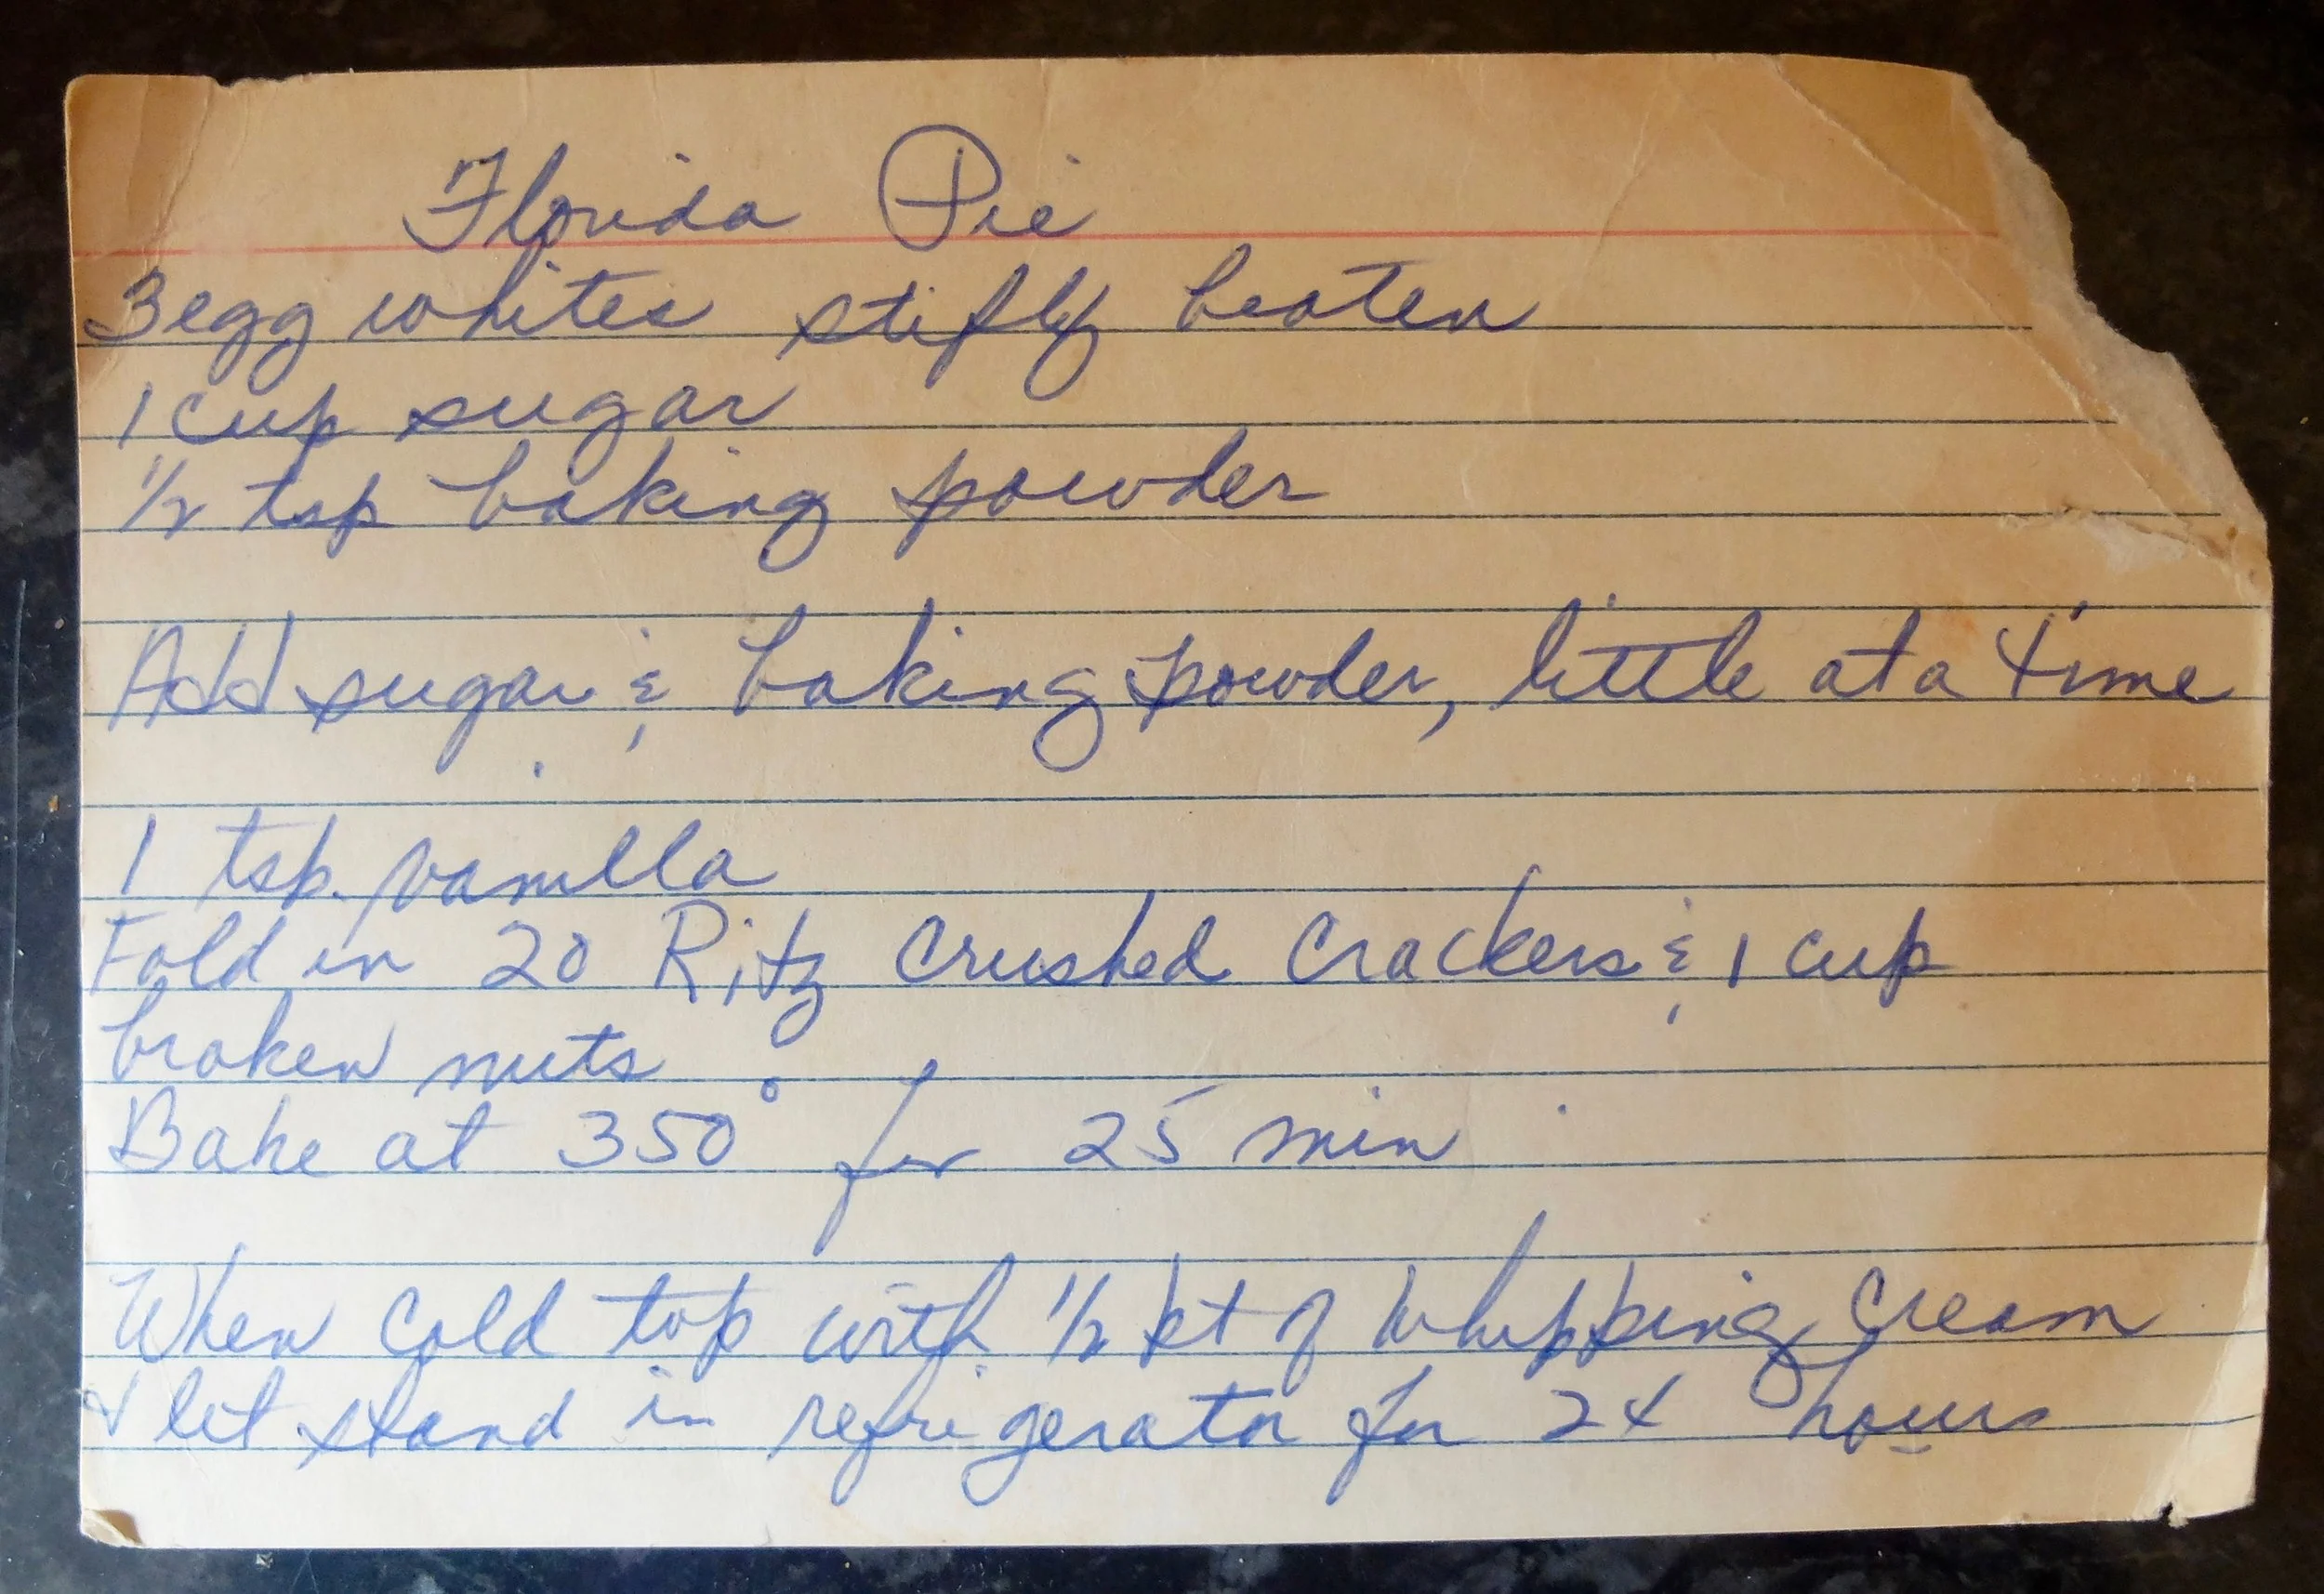 Florida Pie
3 egg whites stifly beaten
1 cup sugar
1/2 tsp baking powder
Add sugar & baking powder, little at a time
1 tsp. vanilla
Fold in 20 Ritz Crushed Crackers & 1 cup
broken nuts
Bake at 350° for 25 min
When Cold top with 1/2 pt of Whipping Cream
& let stand in refrigerator for 24 hours